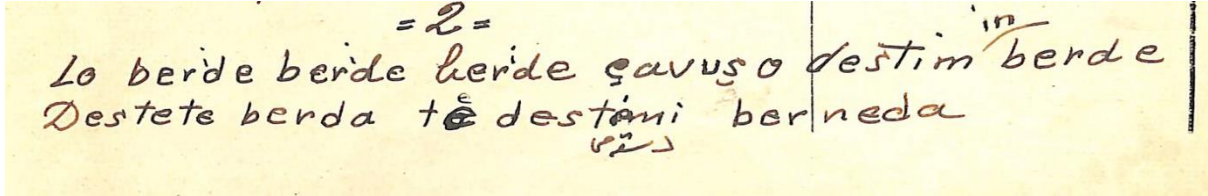 = 2 =
Lo berde berde berde çavuşo destim in berde
Destete berda tê destimi berneda